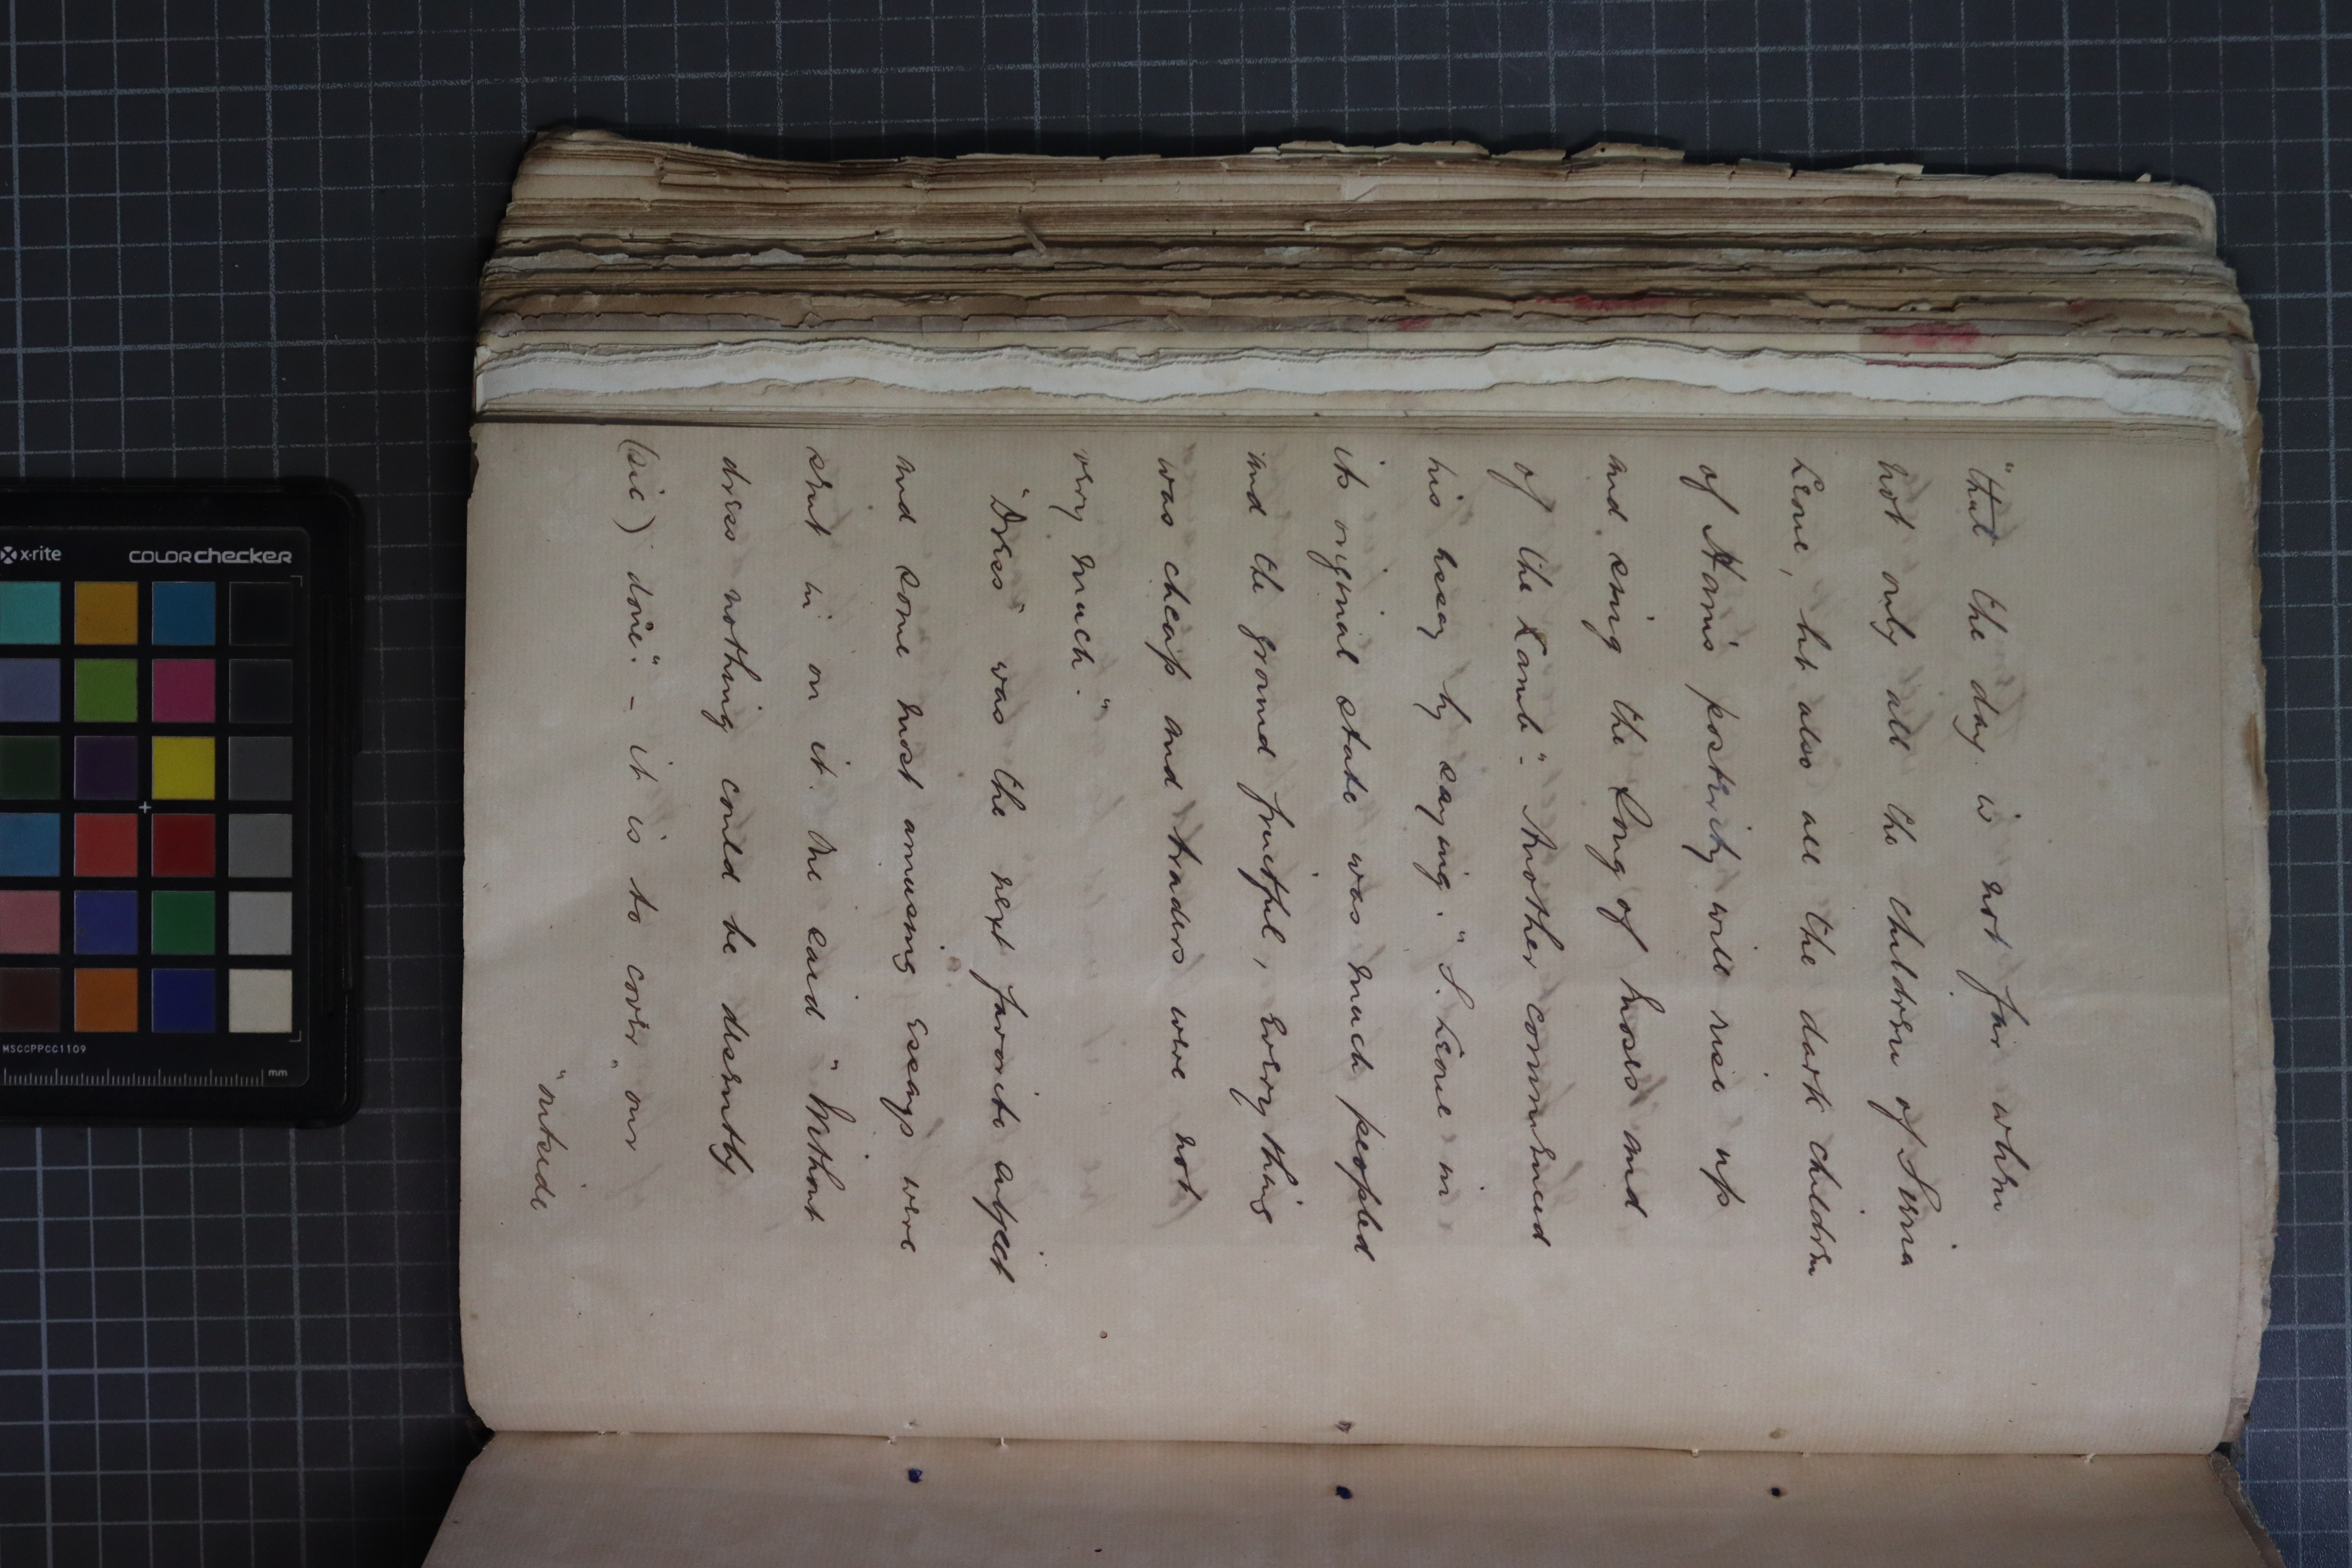 "that the day is not far when
not only all the children of Sierra
Leone, but also all the dark children
of Ham's posterity will rise up
and sing the Song of Moses and
of the Lamb". Another commenced
his essay by saying. "S. Leone in
its original state was much peopled
and the ground fruitful, every thing
was cheap and traders were not
very much."
"Dress" was the next favorite subject
and some most amusing essays were
sent in on it. One said "Without
dress nothing could be desently
(sic) done". - it is to cover "our
"outside
x-rite
COLORchecker
MSCCPPCC1109
mm